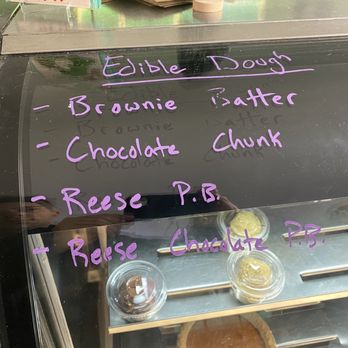 Edible Dough
- Brownie Batter
- Chocolate Chunk
- Reese P.B.
- Reese Chocolate P.B.